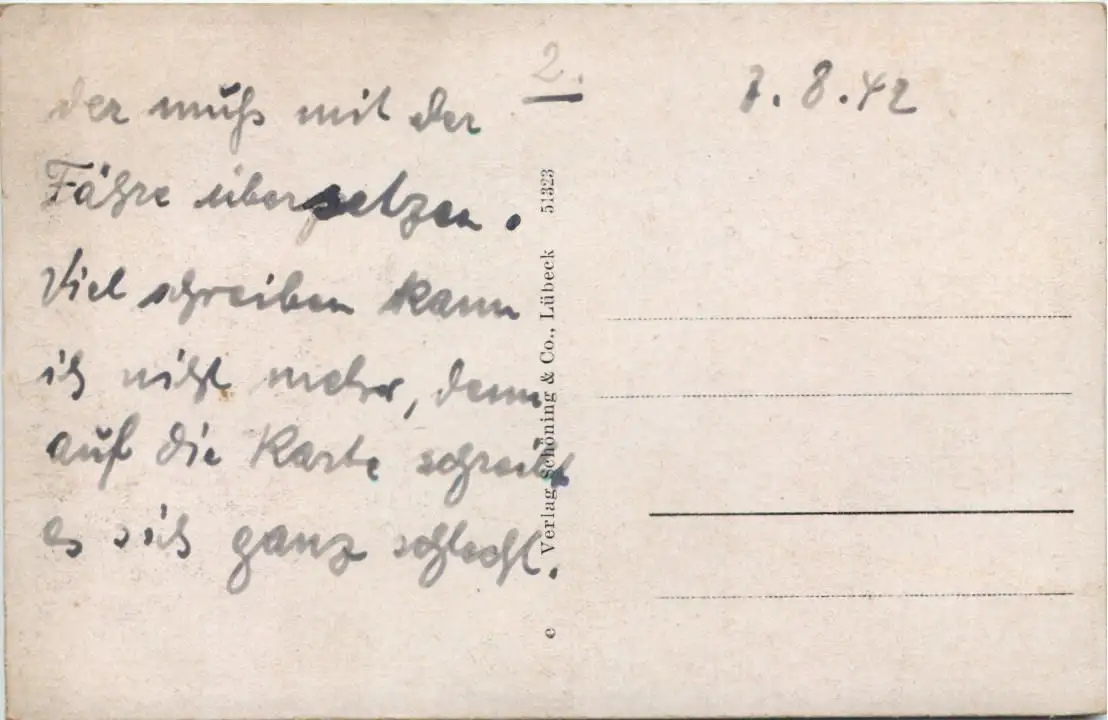 2.
7.8.42
der muß mit der
Fähre übersetzen.
Viel schreiben kann
ich nicht mehr, denn
auf die Karte schreibt
es sich ganz schlecht.
c Verlag Schöning & Co., Lübeck 51323